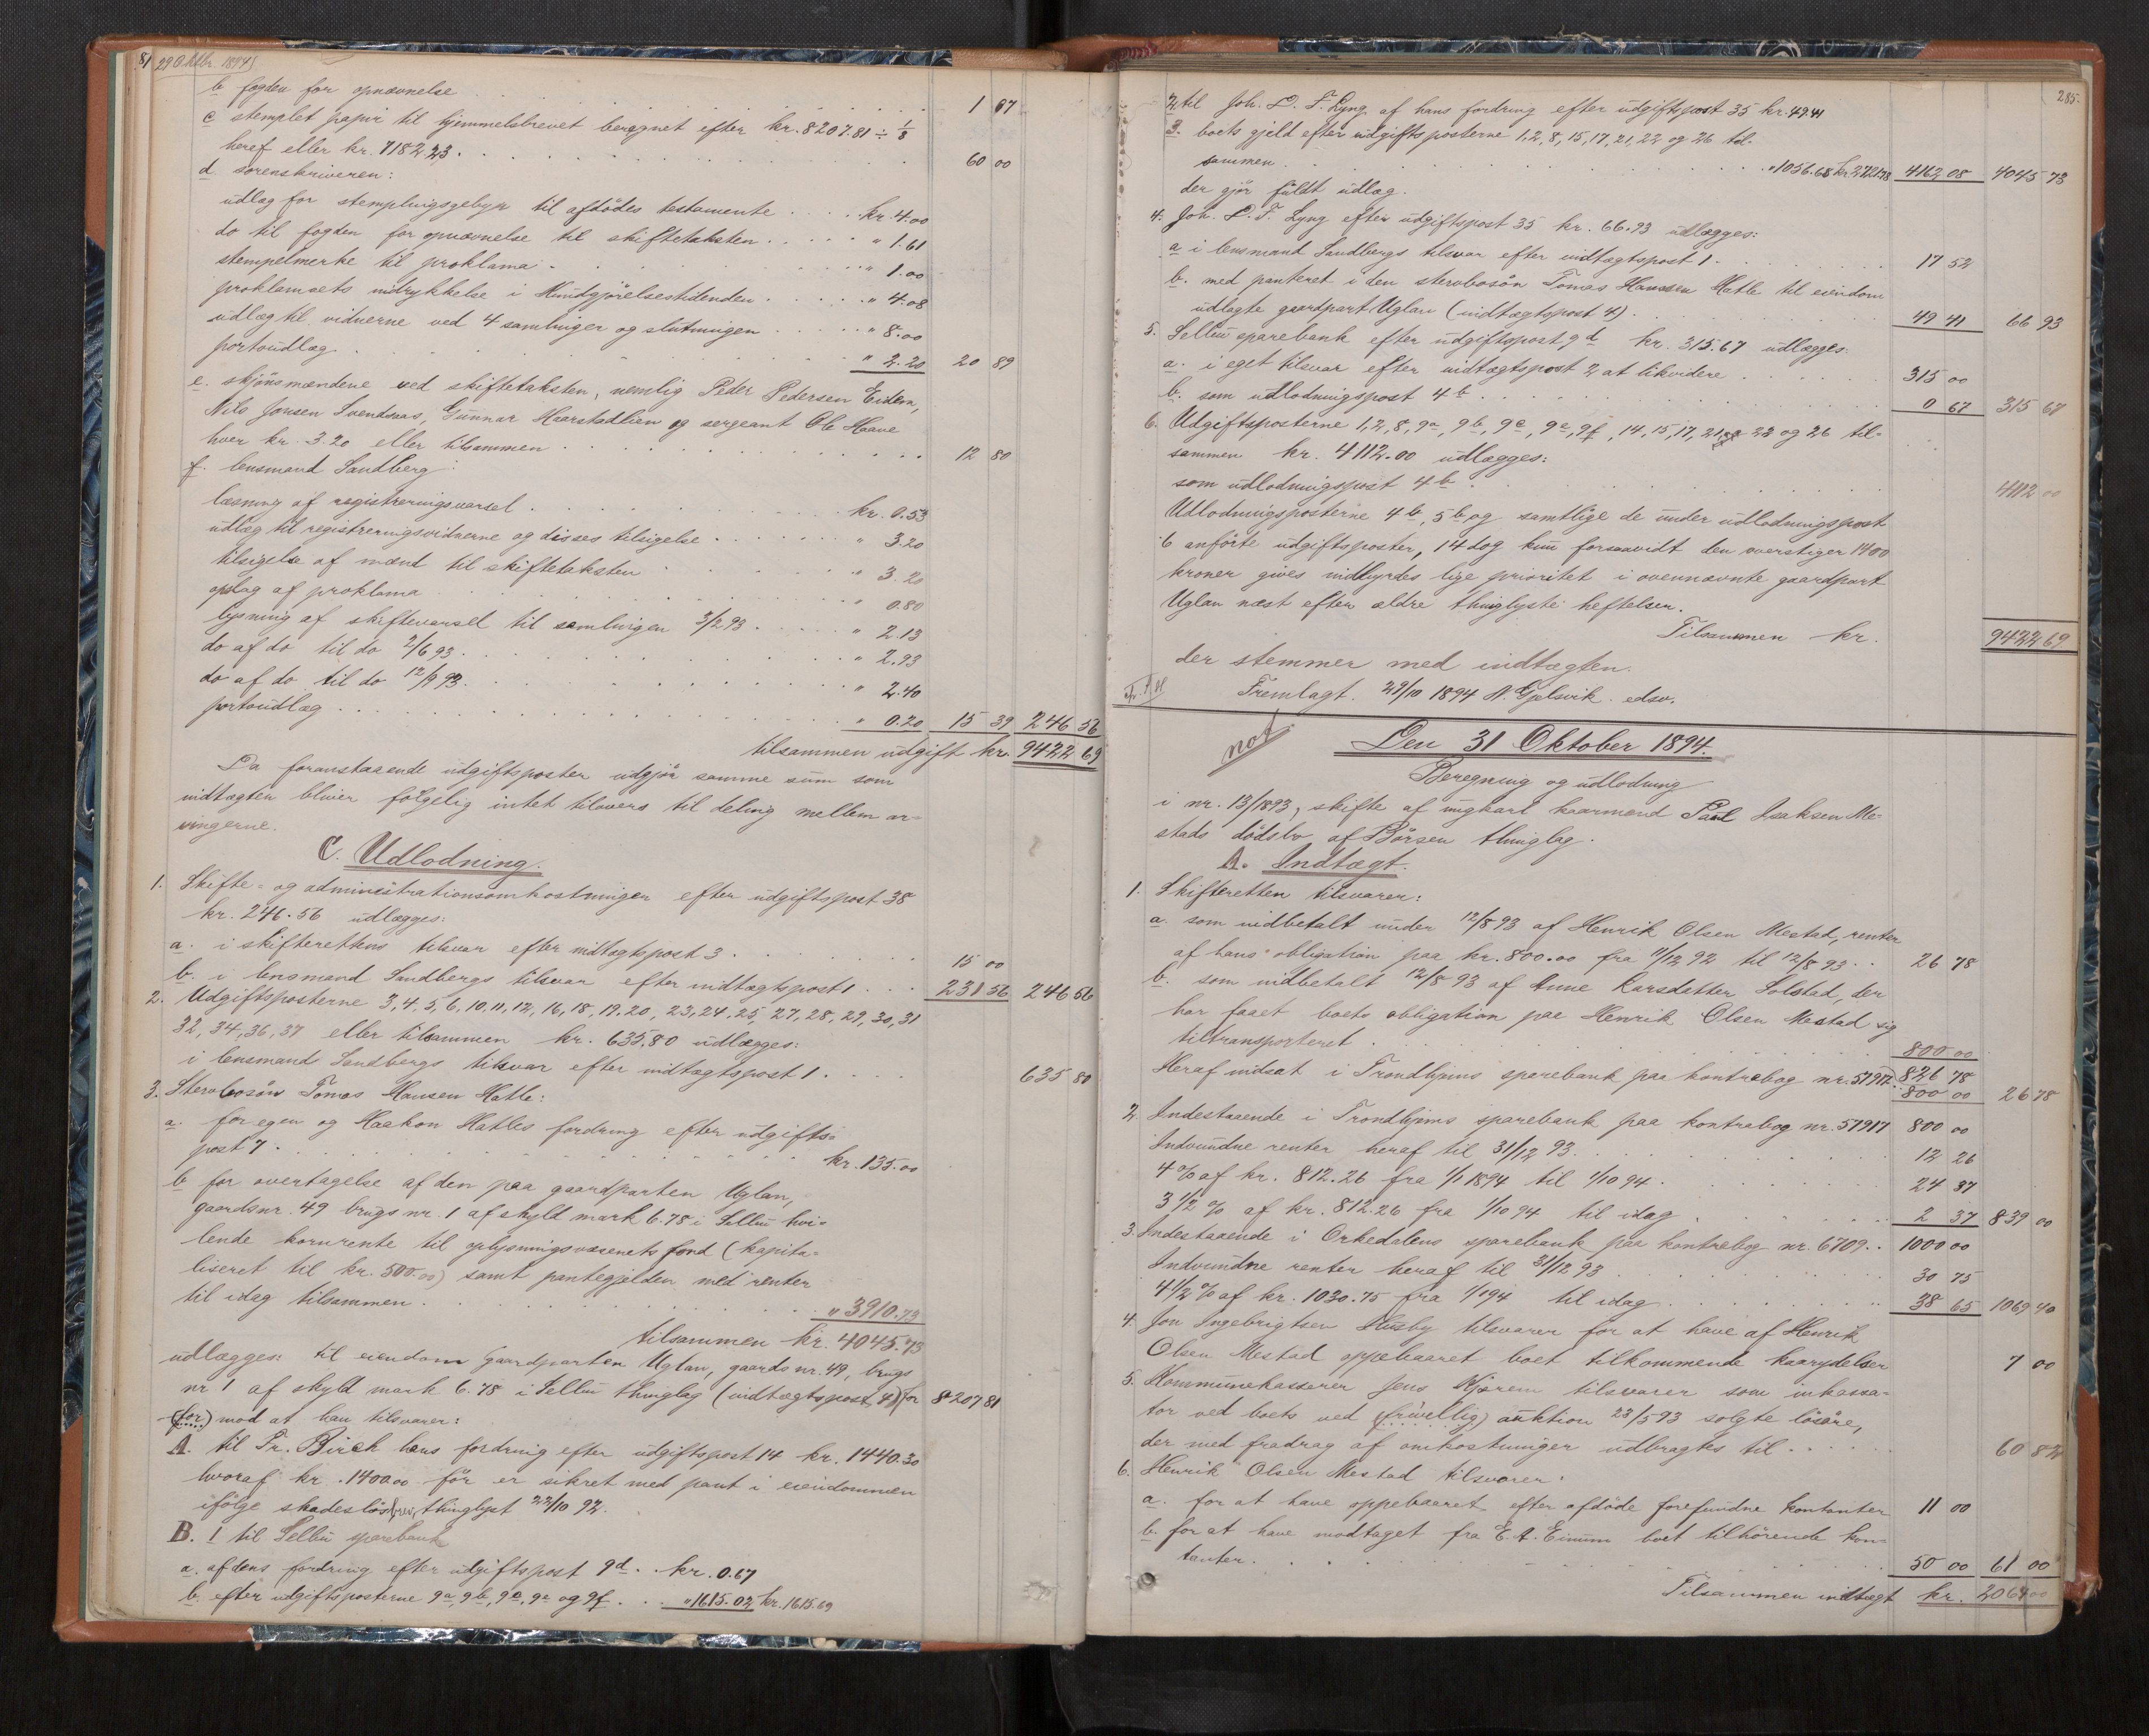 29 Oktbr. 1894
b fogden for opnævnelse . . . 1 67
c stemplet papir til hjemmelsbrevet beregnet efter kr. 8207.81 ÷ 1/8
heraf eller kr. 7182.23. . . . 60 00
d sorenskriveren:
udlæg for stemplingsgebyr til afdödes testamente . . . . kr. 4.00
do til fogden for opnævnelse til skiftetaksten . . . . . " 1.61
stempelmerke til proklama . . . " 1.00
proklamaets indrykkelse i Kundgjörelsestidenden . . . . . " 4.08
udlæg til vidnerne ved 4 samlinger og slutningen . . . . . " 8.00
portoudlæg . . . " 2.20 20 89
e. skjönsmændene ved skiftetaksten, nemlig Peder Pedersen Eidem,
Nils Jonsen Svendsaas, Gunnar Haarstadlien og sergeant Ole Haave
hver kr. 3.20 eller tilsammen . . . 12 80
f. lensmand Sandberg:
læsning af registreringsvarsel . . . kr. 0.53
udlæg til registreringsvidnerne og disses tilsigelse . . . " 3.20
tilsigelse af mænd til skiftetaksten . . . " 3.20
opslag af proklama . . . " 0.80
lysning af skiftevarsel til samlingen 3/2 93 . . . " 2.13
do af do til do 2/6 93 . . . " 2.93
do af do til do 12/9 93. . . . " 2.40
portoudlæg . . . " 0.20 15 39 246 56
tilsammen udgift kr. 9422 69
Da foranstaaende udgiftsposter udgjör samme sum som
indtægten bliver fölgelig intet tilovers til deling mellem ar-
vingerne.
C. Udlodning.
1. Skifte- og administrationsomkostninger efter udgiftspost 38
kr. 246.56 udlægges:
a. i skifterettens tilsvar efter indtægtspost 3 . . . 15 00
b. i lensmand Sandbergs tilsvar efter indtægtspost 1 . . . 231 56 246 56
2. Udgiftsposterne 3, 4, 5, 6, 10, 11, 12, 16, 18, 19, 20, 23, 24, 25, 27, 28, 29, 30, 31
32, 34, 36, 37 eller tilsammen kr. 635.80 udlægges:
i lensmand Sandbergs tilsvar efter indtægtspost 1 . . . 635 80
3. Stervbosön Tomas Hansen Hatle:
a. for egen og Haakon Hatles fordring efter udgifts-
post 7 . . . kr. 135.00
b for overtagelse af den paa gaardparten Uglan,
gaardsnr. 49 brugs nr. 1 af skyld mark 6.78 i Selbu hvi-
lende kornrente til oplysningsvæsenets fond (kapita-
liseret til kr. 500.00) samt pantegjelden med renter
til idag tilsammen . . . " 3910.73
tilsammen kr. 4045.73
udlægges: til eiendom gaardparten Uglan, gaards nr. 49, brugs
nr. 1 af skyld mark 6.78 i Selbu thinglag (indtægtspost 4) for 8207 81
(for) mod at han tilsvarer:
A. til Fr. Birch hans fordring efter udgiftspost 14 kr. 1440.30
hvoraf kr. 1400.00 för er sikret med pant i eiendommen
ifölge skadeslösbrev, thinglyst 22/10 92.
B. 1 til Selbu sparebank
a. af dens fordring efter udgiftspost 9d . . kr. 0.67
b. efter udgiftsposterne 9a, 9b, 9c, 9e og 9f . . . " 1615.02 kr. 1615.69
285.
2 til Joh. D. F. Lyng af hans fordring efter udgiftspost 35 kr. 49.41
3. boets gjeld efter udgiftsposterne 1, 2, 8, 15, 17, 21, 22 og 26 til-
sammen . . . " 1056.68 kr. 2721.78 4162 08 4045 73
der gjör fuldt udlæg.
4. Joh. D. F. Lyng efter udgiftspost 35 kr. 66.93 udlægges:
a i lensmand Sandbergs tilsvar efter indtægtspost 1 . . . 17 52
b. med panteret i den stervbosön Tomas Hansen Hatle til eiendom
udlagte gaardpart Uglan (indtægtspost 4) . . . 49 41 66 93
5. Selbu sparebank efter udgiftspost 9d kr. 315.67 udlægges:
a. i eget tilsvar efter indtægtspost 2 at likvidere . . . 315 00
b. som udlodningspost 4b . . . 0 67 315 67
6. Udgiftsposterne 1, 2, 8, 9a, 9b, 9c, 9e, 9f, 14, 15, 17, 21, 22 og 26 til-
sammen kr. 4112.00 udlægges:
som udlodningspost 4b . . . 4112 00
Udlodningsposterne 4b, 5b og samtlige de under udlodningspost
6 anförte udgiftsposter, 14 dog kun forsaavidt den overstiger 1400
kroner gives indbyrdes lige prioritet i ovennævnte gaardpart
Uglan næst efter ældre thinglyste heftelser.
Tilsammen kr. 9422 69
der stemmer med indtægten.
Fremlagt. 29/10 1894 N. Gjelsvik. edsv.
not
Den 31 Oktober 1894.
Beregning og udlodning
i nr. 13/1893, skifte af ungkarl kaarmand Paul Isaksen Me-
stads dödsbo af Börsen thinglag.
A. Indtægt.
1. Skifteretten tilsvarer:
a. som indbetalt under 12/8 93 af Henrik Olsen Mestad, renter
af hans obligation paa kr. 800.00 fra 11/12 92 til 12/8 93 . . 26 78
b. som indbetalt 12/8 93 af Anne Larsdatter Solstad, der
har faaet boets obligation paa Henrik Olsen Mestad sig
tiltransporteret . . . 800 00
826 78
Heraf indsat i Trondhjems sparebank paa kontrabog nr. 57917. 800 00 26 78
2. Indestaaende i Trondhjems sparebank paa kontrabog nr. 57917 800 00
Indvundne renter heraf til 31/12 93 . . . 12 26
4 % af kr. 812.26 fra 1/1 1894 til 1/10 94 . . . 24 37
3 1/2 % af kr. 812.26 fra 1/10 94 til idag . . . 2 37 839 00
3. Indestaaende i Orkedalens sparebank paa kontrabog nr. 6709 . . 1000 00
Indvundne renter heraf til 31/12 93 . . . 30 75
4 1/2 % af kr. 1030.75 fra 1/1 94 til idag . . . 38 65 1069 40
4. Jon Ingebrigtsen Husby tilsvarer for at have af Henrik
Olsen Mestad oppebaaret boet tilkommende kaarydelser 7 00
5. Kommunekasserer Jens Kjörem tilsvarer som inkassa-
tor ved boets ved (frivillig) auktion 23/5 93 solgte lösöre,
der med fradrag af omkostninger udbragtes til . . . 60 82
6. Henrik Olsen Mestad tilsvarer:
a. for at have oppebaaret efter afdöde forefundne kontanter 11 00
b. for at have modtaget fra E. A. Einum boet tilhörende kon-
tanter . . . 50 00 61 00
Tilsammen indtægt kr. 2064 00